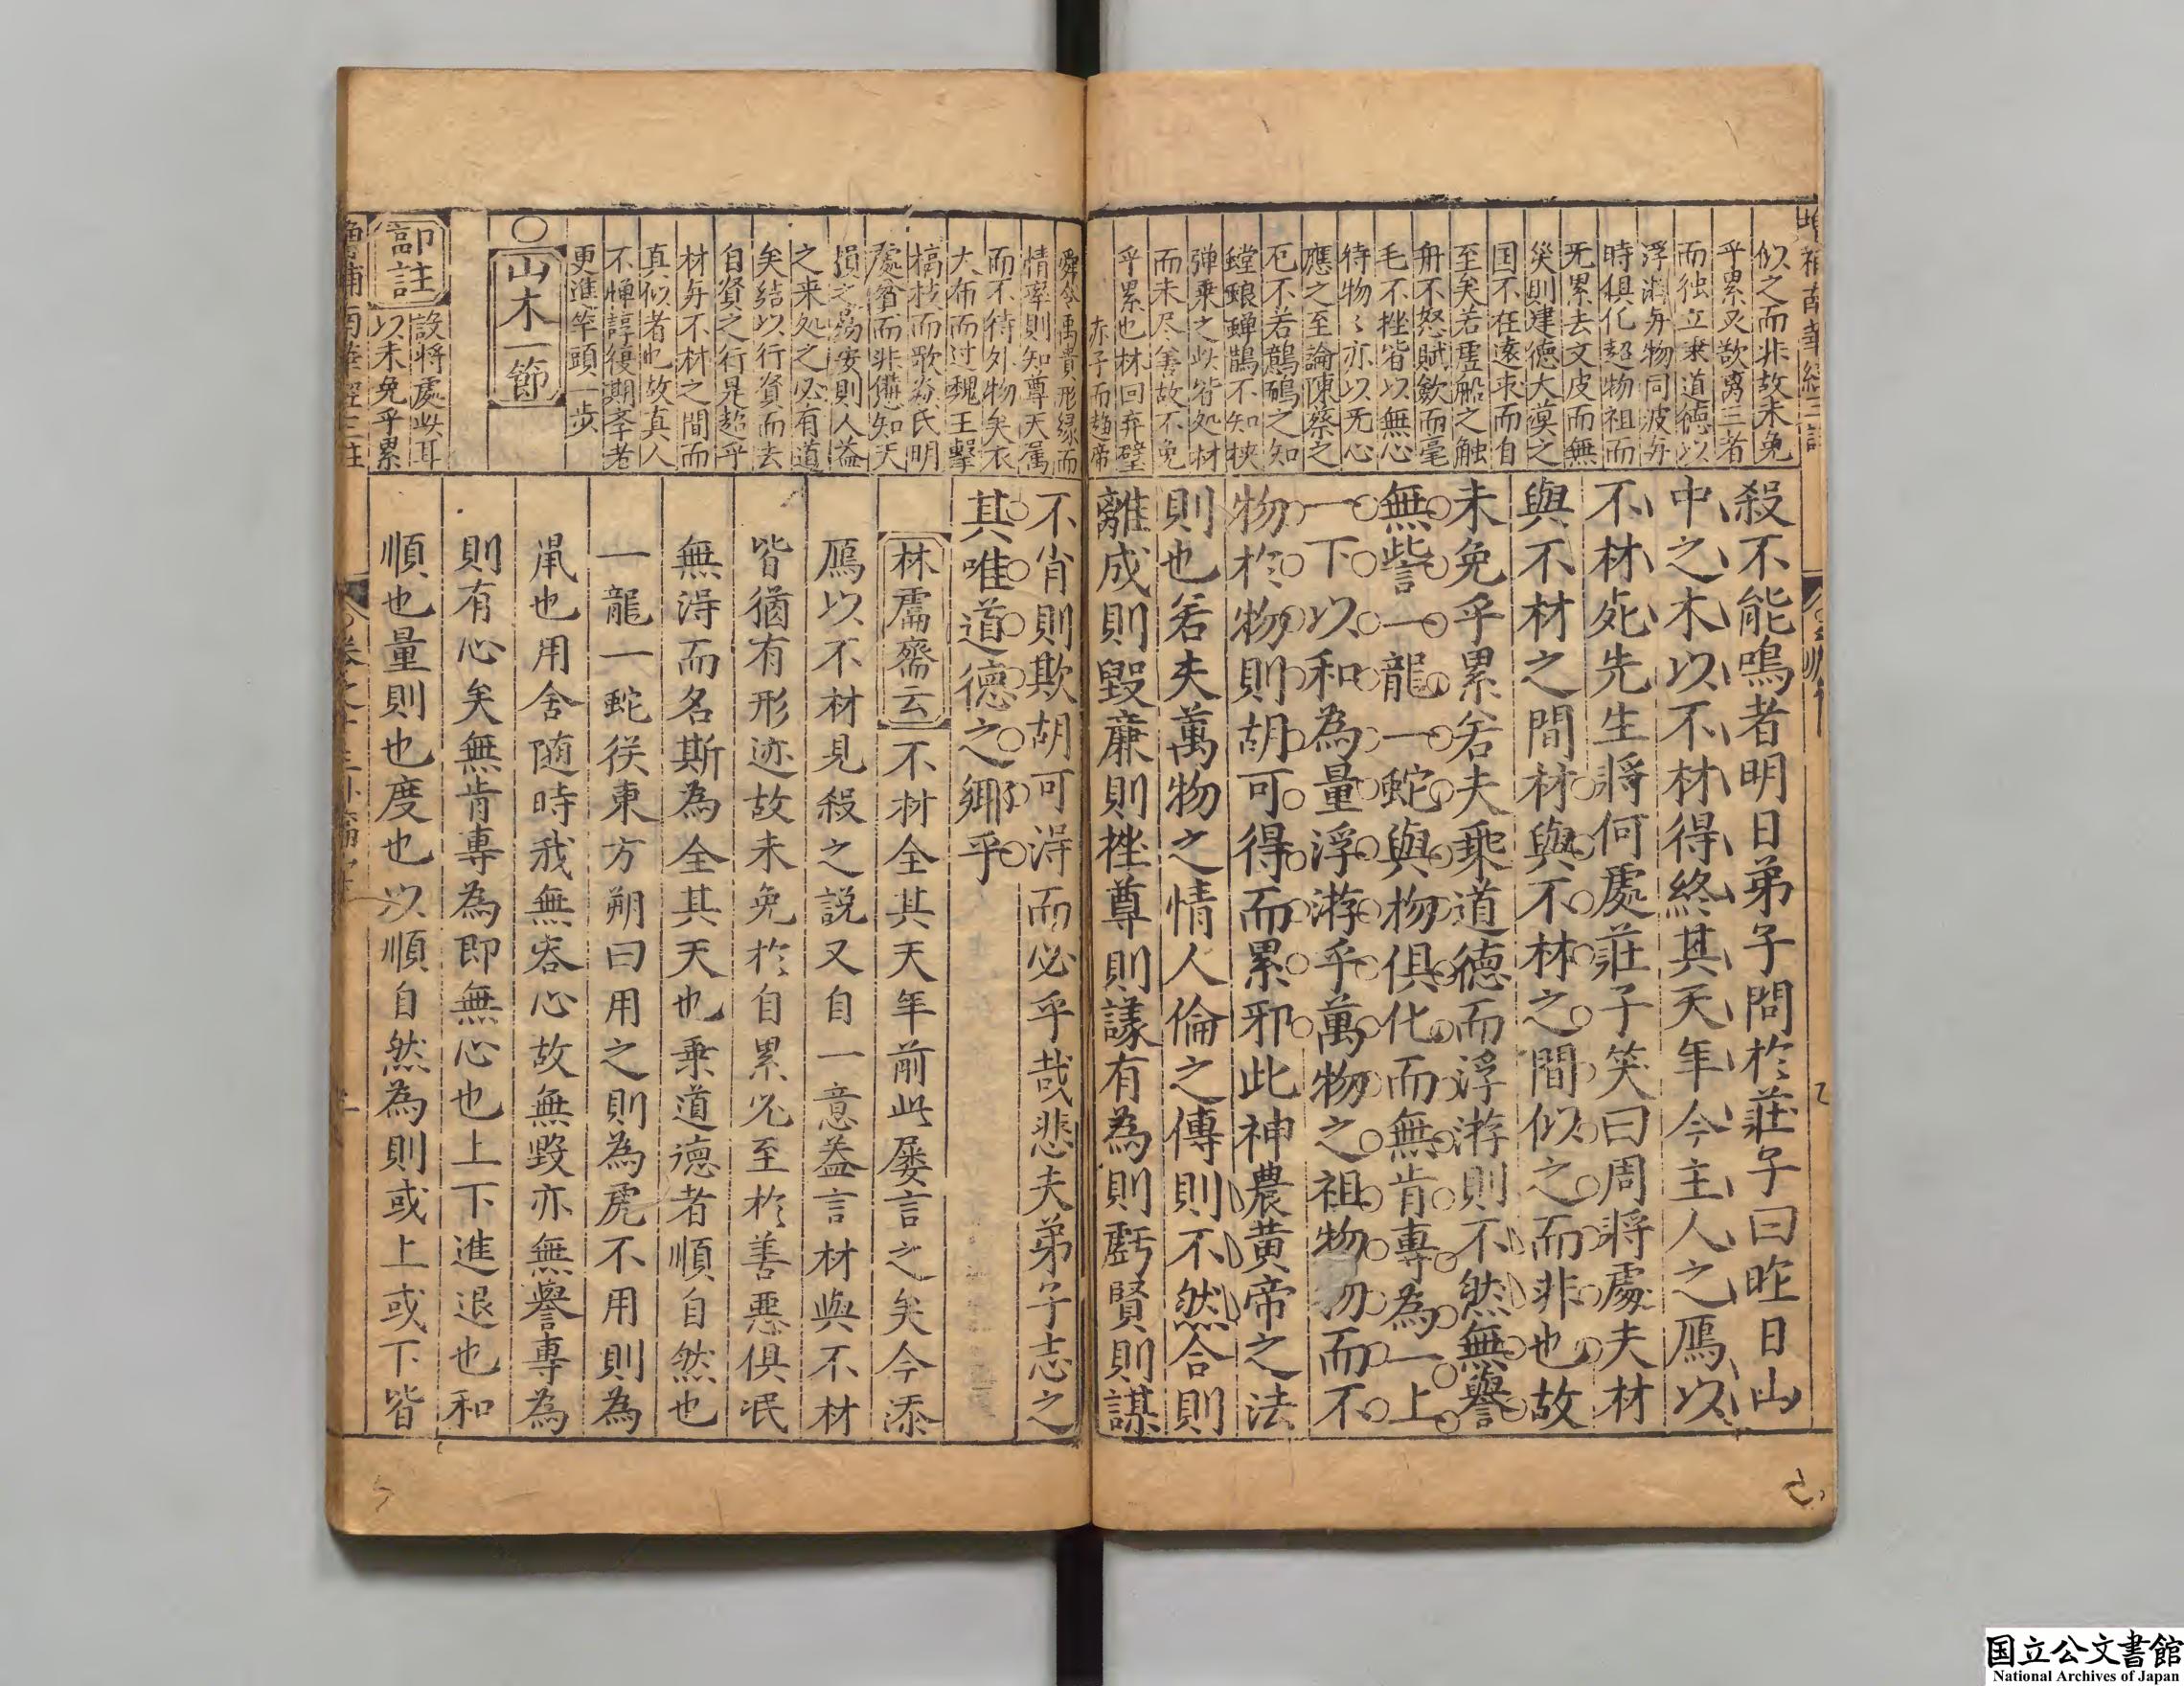 似之而非故未免
乎累又欲离三者
而独立乗道德以
浮游㒷物同波㒷
時俱化超物祖而
无累去文皮而無
災則建德大莫之
国不在遠求而自
至矣若虚船之触
舟不怒賦斂而毫
毛不挫皆以無心
待物〻亦以无心
應之至論陳蔡之
厄不若鷾鴯之知
螳螂蟬鵲不知挟
弾乗之此皆処材
而未尽善故不免
乎累也林回弃璧
赤子而趋帝
殺不能鳴者明日弟子問於莊子曰昨日山
中之木以不材得終其天年今主人之鴈以
不材死先生將何處莊子笑曰周將處夫材
與不材之間材與不材之間似之而非也故
未免乎累若夫乘道德而浮游則不然無譽
無訾一龍一蛇與物俱化而無肯專為一上
一下以和為量浮游乎萬物之祖物物而不
物於物則胡可得而累邪此神農黄帝之法
則也若夫萬物之情人倫之傳則不然合則
離成則毀廉則挫尊則議有為則虧賢則謀
舜令禹貴形縁而
情率則知尊天属
而不待外物矣衣
大布而过魏王擊
槁枝而歌焱氏明
處貧而非憊知天
損之易安則人益
之来処之必有道
矣結以行資而去
自賢之行是超乎
材㒷不材之間而
真似者也故真人
不憚諄復期学者
更進竿頭一步
○山木一節
郭註
設將處此耳
以未免乎累
不肖則欺胡可得而必乎哉悲夫弟子志之
其唯道德之鄉乎
林鬳齋云不材全其天年前此屡言之矣今添
鴈以不材見殺之説又自一意益言材與不材
皆猶有形迹故未免於自累必至於善悪俱泯
無淂而名斯為全其天也乗道德者順自然也
一龍一蛇後東方朔曰用之則為虎不用則為
鼠也用舍随時我無容心故無毀亦無譽專為
則有心矣無肯專為即無心也上下進退也和
順也量則也度也以順自然為則或上或下皆
国立公文書館
National Archives of Japan